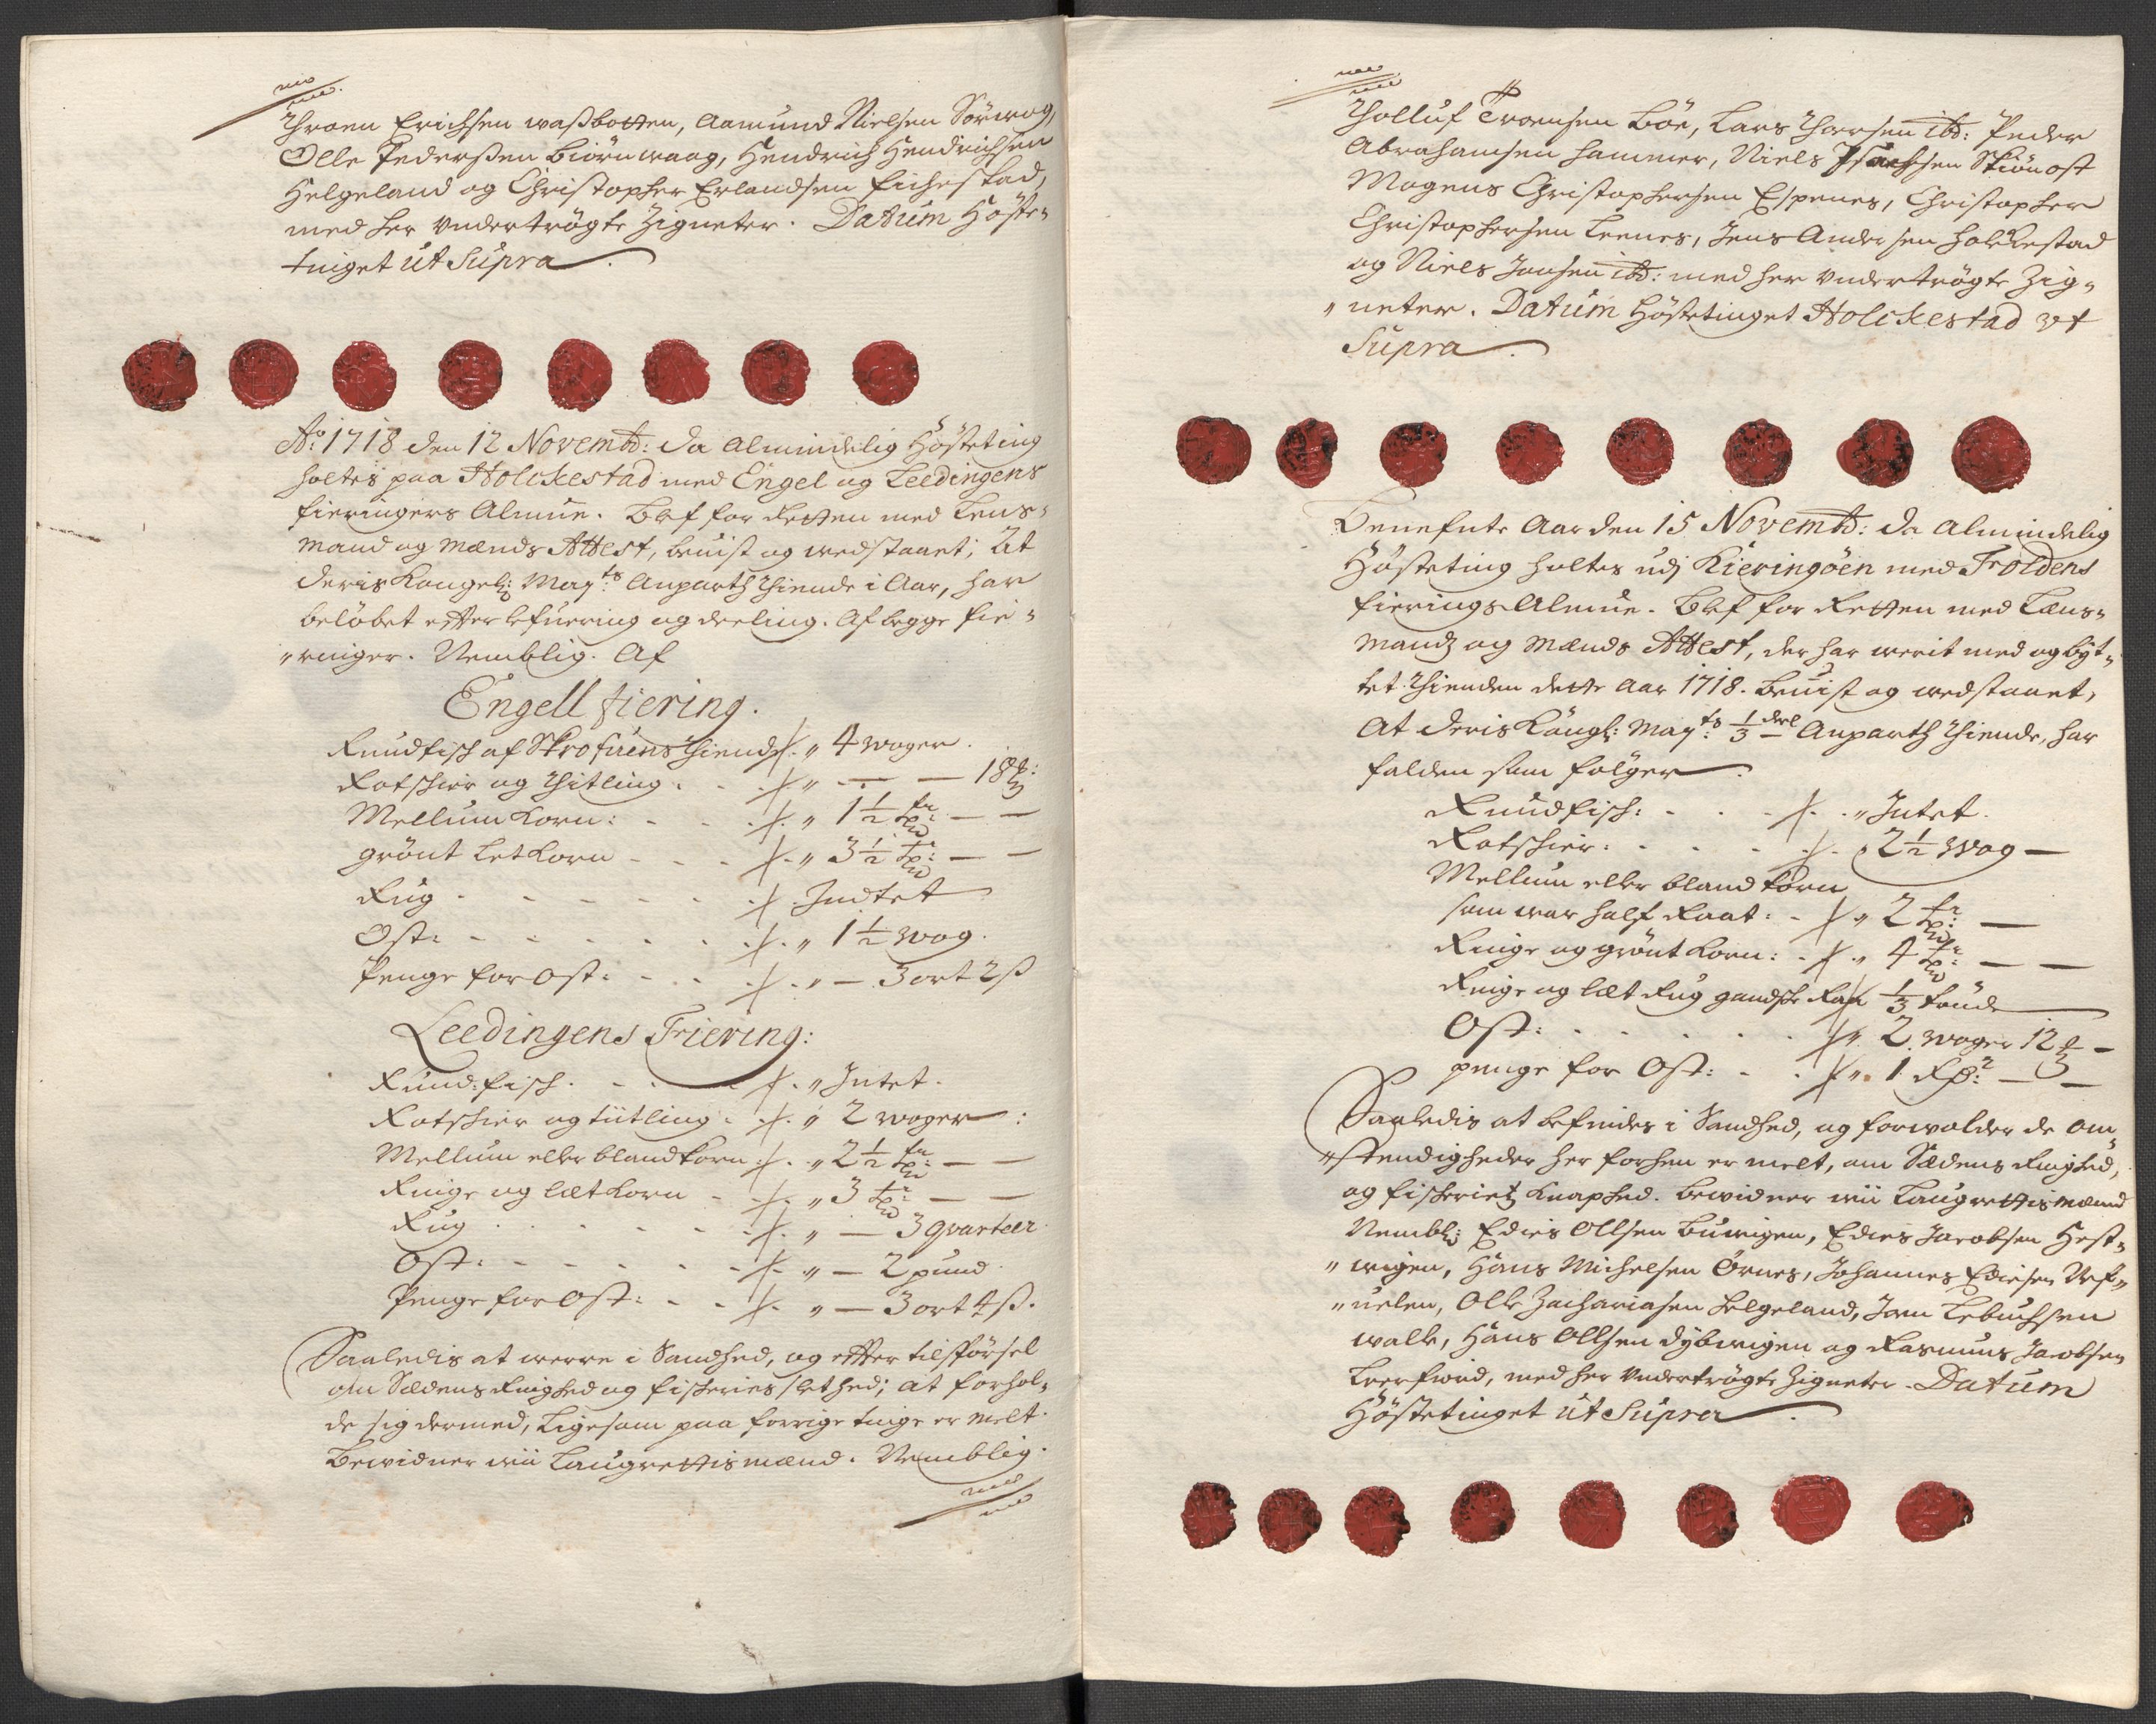 Throen Erichsen waßbotten, Aamund Nielsen Sörwog,
Olle Pederßen Biörnwaag, Hendrich Hendrichsen
Helgeland og Christopher Erlandsen Eichestad,
med her undertrögte Zigneter. Datum Höste-
tinget ut Supra.
Ao: 1718 den 12 Novembr: da Almindelig Hösteting
holtes paa Holckestad med Engel og Leedingens
fieringers Almue. Blef for Retten med Lens-
mand og Mænds Attest, beviist og wedstaaet; At
deris Kongel: Mayts: Anparth Thiende i Aar, har
beløbet efter befaring og deeling. Af begge fie-
"ringer. Nemblig. Af
Engell fiering.
Rundfisch af Skrofuens Thiende " 4 woger.
Rotschier og Thitling. " — — 18 ℔:
Mellum Korn: - - " 1½ tn: — —
grönt let Korn - - - " 3½ tn: — —
Rug - - - - - Indtet
Ost: - - - - - " 1½ wog.
Penge for Ost: - - " — 3 ort 2 ß
Leedingens Fiering:
Rund: fisch. - - " Intet.
Rotschier og tiitling: " 2 woger:
Mellum eller bland korn: " 2½ tn: — —
Ringe og læt Korn - " 3 tn: — —
Rug - - - - - " — 3 qvarteer
Ost: - - - - - " — 2 pund.
Penge for Ost: - - " — 3 ort 4 ß.
Saaledis at werre i Sandhed, og efter tilspørsel
om Sædens Ringhed og fischeries slethed; at forhol-
de sig dermed, ligesom paa forrige tinge er melt.
Bewidner wii Laugrettismænd. Nemblig.
Tholluf Troensen Böe, Lars Thorsen ibd: Peder
Abrahamsen Hammer, Niels Isachsen Skiönost
Mogens Christophersen Espenes, Christopher
Christophersen Leenes, Jens Andersen Holckestad
og Niels Jonsen ibd: med her undertrögte Zig-
"neter. Datum Höstetinget Holckestad ut
Supra.
Benefnte Aar den 15 Novembr: da Almindelig
Hösteting holtes udj Kieringöen med Foldens
fierings Almue. Blef for Retten med Læns-
mandz og Mænds Attest, der har werit med og byt-
tet Thienden dette Aar 1718. beviist og wedstaaet,
At deris Kongl: Mayts: 1/3 deel Anparth Thiende, har
falden som følger.
Rundfisch: - - - " Intet.
Rotschier: - - - - 2½ wog —
Mellum eller bland korn
som war half Raat: - " 2 tn: —
Ringe og grönt Korn: - " 4 tn: — —
Ringe og læt Rug gandske Raa 1/3 tönde
Ost: - - - - - " 2 woger 12 ℔ —
penge for Ost: - - " 1 Rdr: — —
Saaledis at befindes i Sandhed, og forwolder de om-
"stendigheder her forhen er melt, om Sædens Ringhed,
og fischeriets knaphed. bewidner wii Laugrettismænd
Nembl: Edies Ollsen Buwigen, Edies Jacobsen Hest-
"wigen, Hans Michelsen Örnes, Johannes Ediesen Nef-
"uelen, Olle Zachariasen helgeland, Joen Lebuchsen
walle, Hans Ollsen Dybwigen og Rasmus Jacobsen
Leerfiord, med her undertrögte Zigneter. Datum
Höstetinget ut Supra.